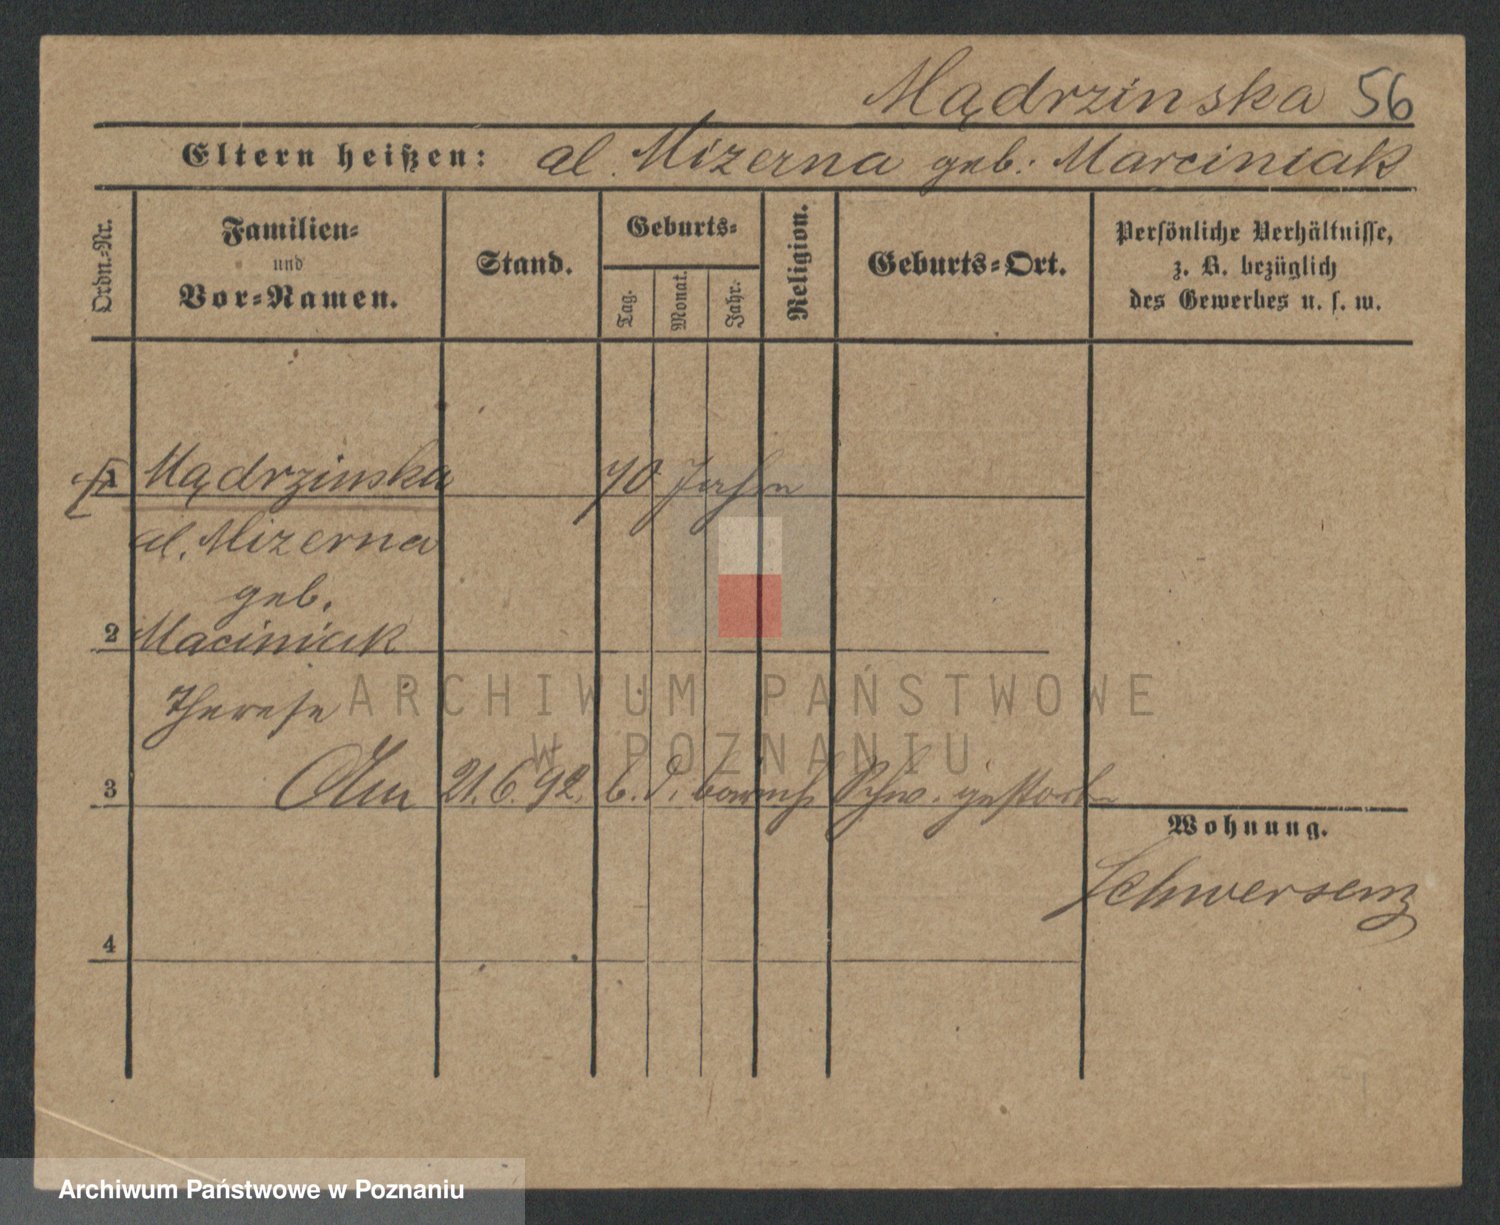 Mądrzinska 56
Eltern heißen: al. Mizerna geb. Marciniak
Ordn.-Nr.
Familien-
und
Vor-Namen.
Stand.
Geburts-
Tag.
Monat.
Jahr.
Religion.
Geburts-Ort.
Persönliche Verhältnisse,
z. B. bezüglich
des Gewerbes u. s. w.
1 Mądrzinska 70 Jahre
al. Mizerna
geb.
2 Maciniak
Therese
ARCHIWUM PAŃSTWOWE
W POZNANIU
3 Am 21.6.92. b. d. Schw. gestorb
Wohnung.
Schwersenz
4
Archiwum Państwowe w Poznaniu